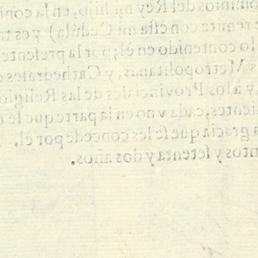 ominios del Rey mi hijo, en la con
rente con esta mi Cedula) y es tu
lo contenido en él; por la presente
s Metropolitanas, y Cathedrales
y a los Provinciales de las Religio
ientes, cada vno en la parte que le
a gracia que se les concede por él.
ntos y setenta y dos años.